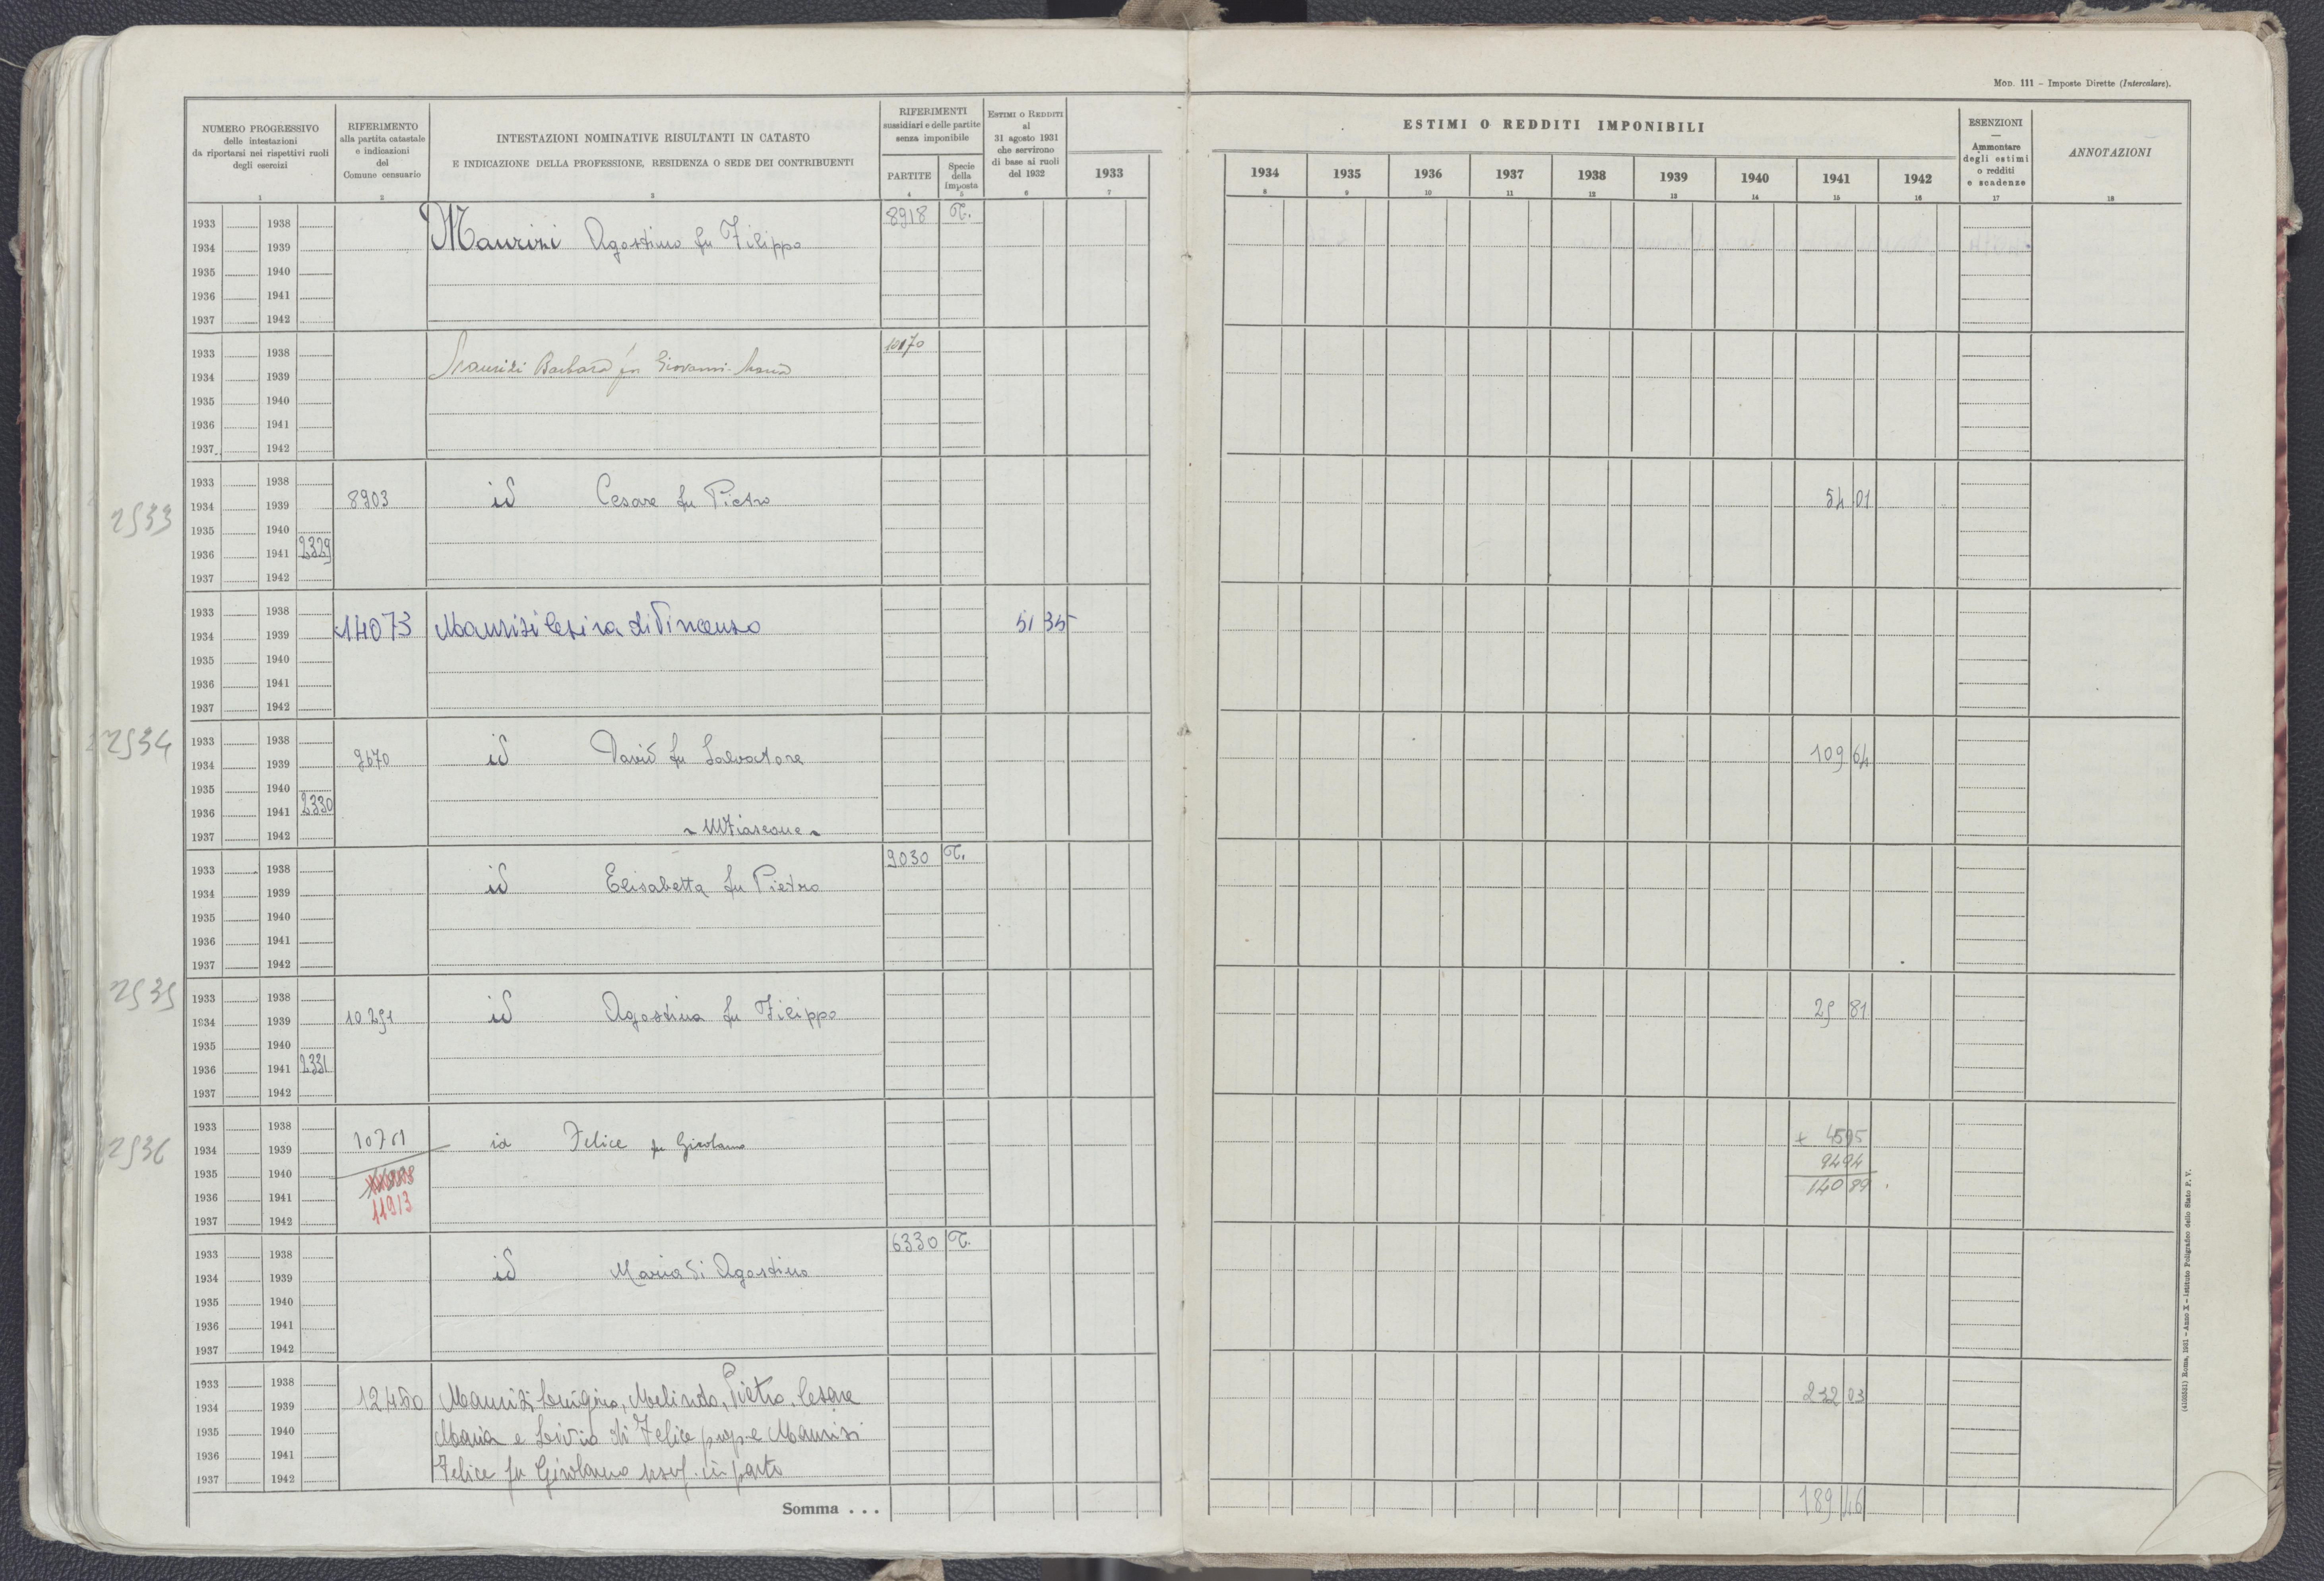 MOD. 111 – Imposte Dirette (Intercalare).
NUMERO PROGRESSIVO
delle intestazioni
da riportarsi nei rispettivi ruoli
degli esercizi
1
RIFERIMENTO
alla partita catastale
e indicazioni
del
Comune censuario
2
INTESTAZIONI NOMINATIVE RISULTANTI IN CATASTO
E INDICAZIONE DELLA PROFESSIONE, RESIDENZA O SEDE DEI CONTRIBUENTI
3
RIFERIMENTI
sussidiari e delle partite
senza imponibile
PARTITE
4
Specie
della
imposta
5
ESTIMI O REDDITI
al
31 agosto 1931
che servirono
di base ai ruoli
del 1932
6
1933
7
ESTIMI O REDDITI IMPONIBILI
1934 1935 1936 1937 1938 1939 1940 1941 1942
8 9 10 11 12 13 14 15 16
ESENZIONI
—
Ammontare
degli estimi
o redditi
e scadenze
17
ANNOTAZIONI
18
1933 1938 8918 T.
1934 1939 Maurizi Agostino fu Filippo
1935 1940
1936 1941
1937 1942
1933 1938 10170
1934 1939 Maurizi Barbara fu Giovanni Maria
1935 1940
1936 1941
1937 1942
1933 1938
2533 1934 1939 8903 id Cesare fu Pietro 54 01
1935 1940
1936 1941 2329
1937 1942
1933 1938
1934 1939 14073 Maurizi Cesira di Vincenzo 51 35
1935 1940
1936 1941
1937 1942
2534 1933 1938
1934 1939 9670 id David fu Salvatore 109 64
1935 1940
1936 1941 2330
1937 1942
1933 1938 9030 T.
1934 1939 id Elisabetta fu Pietro
1935 1940
1936 1941
1937 1942
2535 1933 1938
1934 1939 10251 id Agostina fu Filippo 25 81
1935 1940
1936 1941 2331
1937 1942
1933 1938
2536 1934 1939 10761 id Felice fu Girolamo + 45 95
1935 1940 94 94
1936 1941 11913 140 89
1937 1942
1933 1938 6330 T.
1934 1939 id Maria di Agostino
1935 1940
1936 1941
1937 1942
1933 1938
1934 1939 12460 Maurizi Luigina, Melinda, Pietro, Cesare 232 03
1935 1940 Maria e Livio di Felice prop e Maurizi
1936 1941 Felice fu Girolamo usuf. in parte
1937 1942
Somma . . . 189 46
Roma, 1931 – Anno X – Istituto Poligrafico dello Stato P. V.